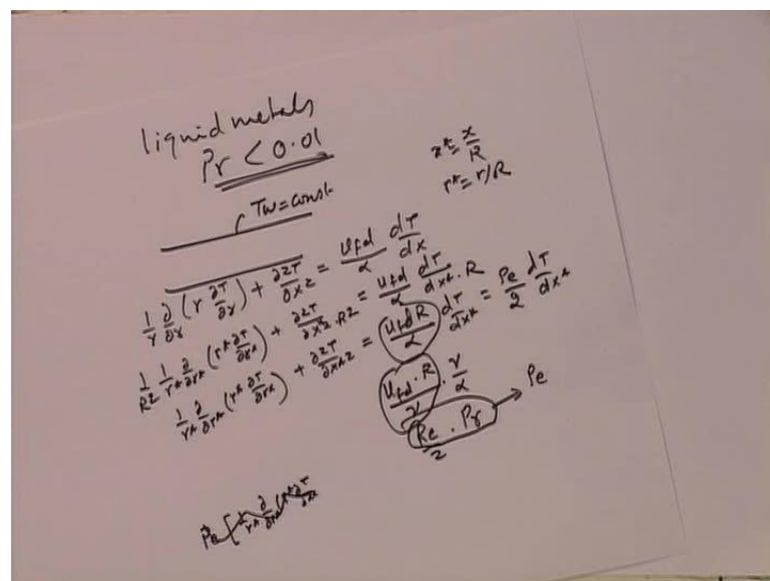 liquid metals
Pr < 0.01
x* = x/R
r* = r/R
Tw = const
1/r ∂/∂r (r ∂T/∂r) + ∂2T/∂x2 = ufd/α dT/dx
1/R2 1/r* ∂/∂r* (r* ∂T/∂r*) + ∂2T/∂x*2 · R2 = ufd/α dT/dx* · R
1/r* ∂/∂r* (r* ∂T/∂r*) + ∂2T/∂x*2 = ufd R/α dT/dx* = Pe/2 dT/dx*
ufd · R/γ · γ/α
Re/2 · Pr → Pe